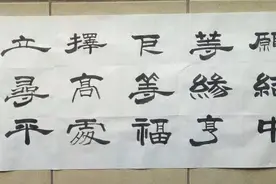 願結中
等緣享
下等福
擇高處
立尋平